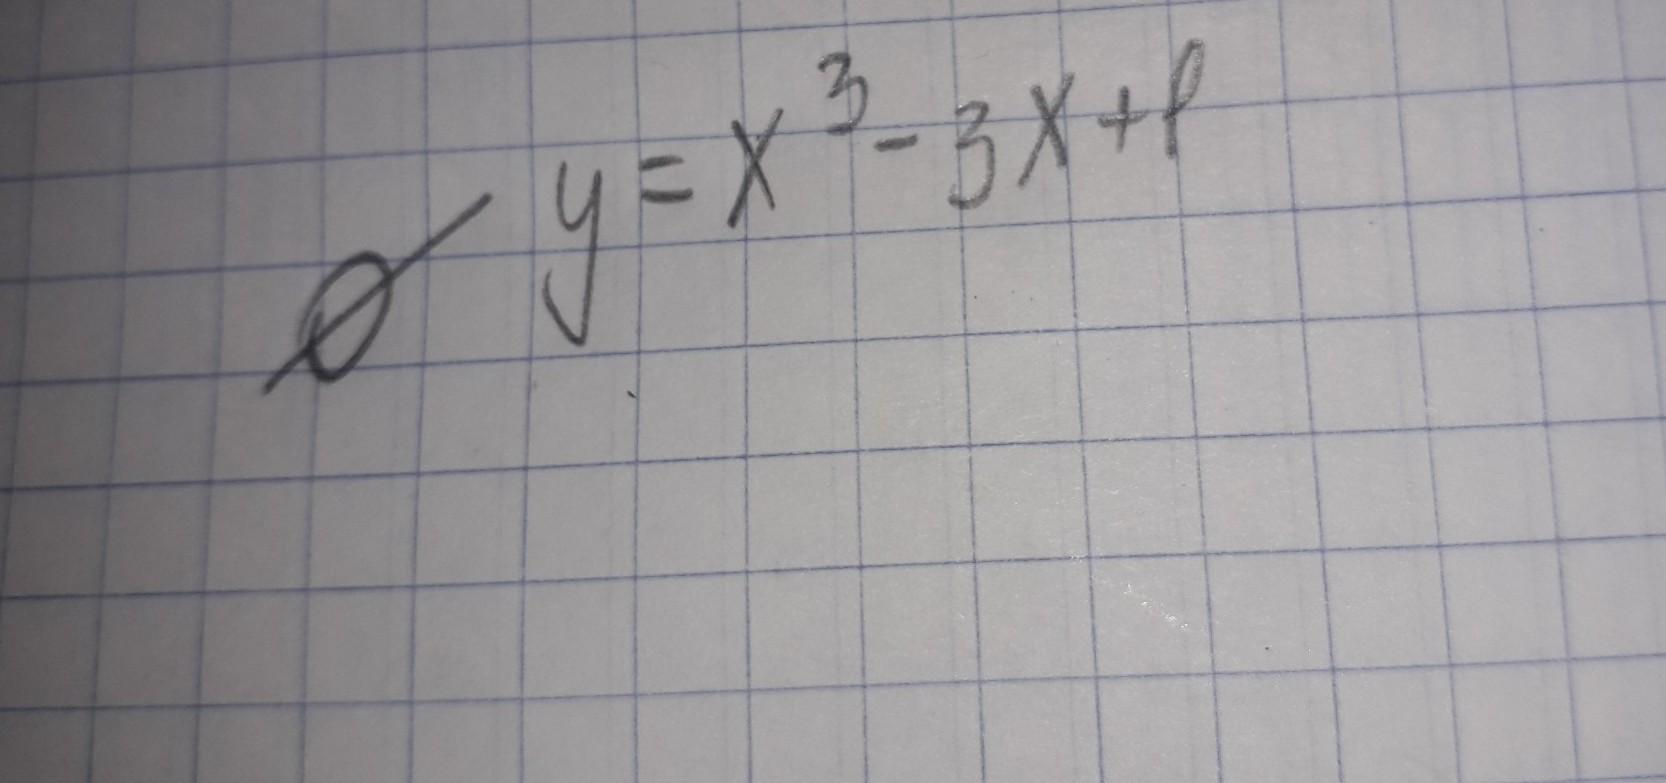 ∅ y = x³ - 3x + 1